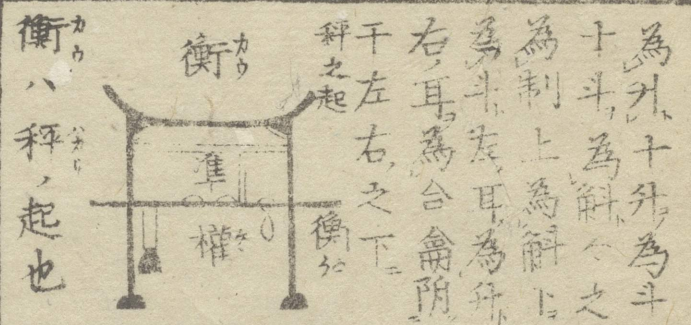 為升十升為斗
十斗為斛今之
為制上為斛下
為斗左耳為升
右耳為合龠附
于左右之下ニ
秤之起
衡カウ
準
權
衡
衡カウハ秤ハカリノ起也